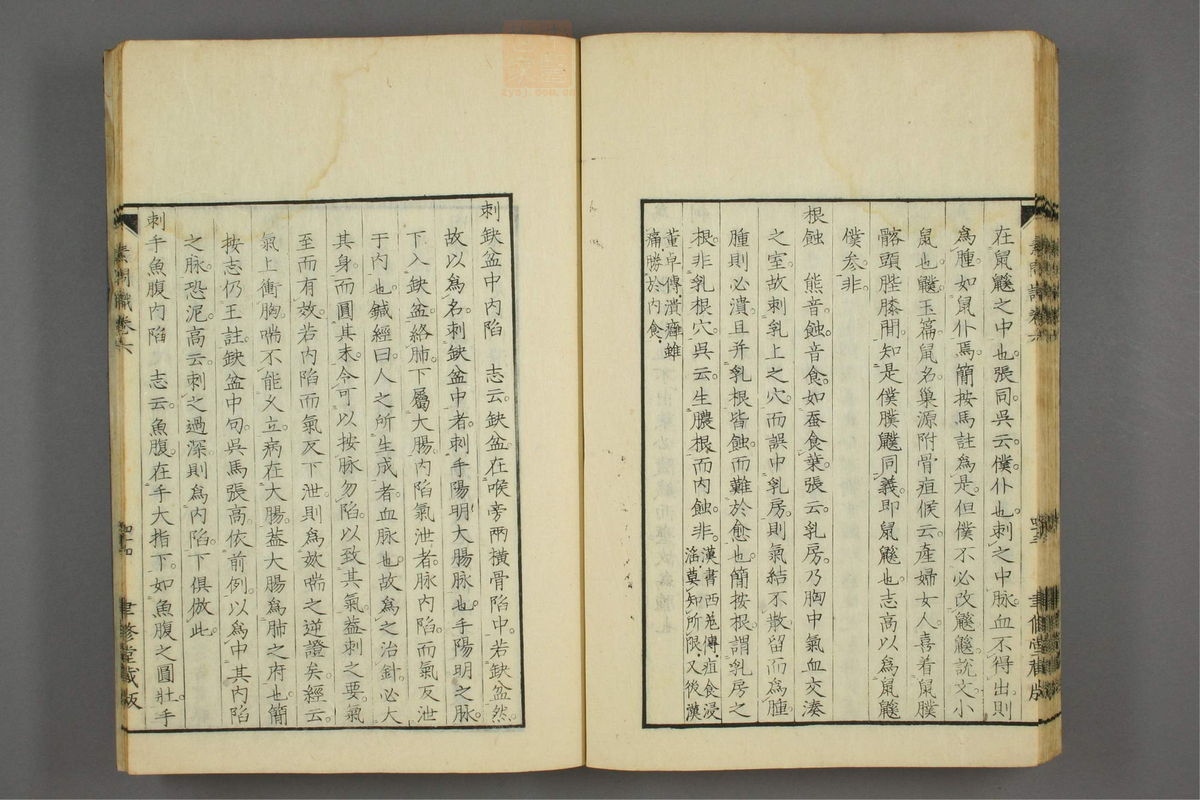 在鼠鼷之中也。張同。吳云。僕仆也。刺之中脉。血不得出。則
爲腫。如鼠仆焉。簡按馬註爲是。但僕不必改鼷。鼷說文。小
鼠也。玉篇。鼠名。巢源附骨疽候云。產婦女人。喜着鼠㒒
髂頭䏶膝間。知是僕㒒鼷同義。即鼠鼷也。志高以爲鼠鼷
僕參。非。
根蝕 熊音。蝕音食。如蚕食葉。張云。乳房。乃胸中氣血交湊
之室。故刺乳上之穴。而誤中乳房。則氣結不散。留而爲腫。
腫則必潰。且并乳根皆蝕。而難於愈也。簡按根。謂乳房之
根。非乳根穴。吳云。生膿根。而内蝕。非。漢書西苑傳。疽食浸
淫。莫知所限。又後漢
董卓傳。潰癰雖
痛。勝於内食。
刺缺盆中内陷 志云。缺盆在喉旁兩橫骨陷中。若缺盆然。
故以爲名。刺缺盆中者。刺手陽明大腸脉也。手陽明之脉。
下入缺盆絡肺。下屬大腸。内陷氣泄者。脉内陷。而氣反泄
于内也。鍼經曰。人之所生成者。血脉也。故爲之治針。必大
其身。而圓其末。令可以按脉勿陷。以致其氣。葢刺之要。氣
至而有效。若内陷而氣反下泄。則爲欬喘之逆證矣。經云。
氣上衝胸。喘不能久立。病在大腸。葢大腸爲肺之府也。簡
按志仍王註。缺盆中句。吳馬張高。依前例。以爲中其内陷
之脉。恐泥。高云。刺之過深則爲内陷。下俱倣此。
刺手魚腹内陷 志云。魚腹。在手大指下。如魚腹之圓壯。手
素問識卷六
聿修堂藏版